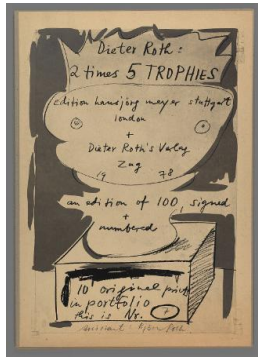 Dieter Roth :
2 times 5 TROPHIES
edition hansjörg mayer stuttgart
london
+
Dieter Roth's Verlag
Zug
19 78
an edition of 100, signed
+
numbered
10 original prints
in portfolio
this is Nr. 7